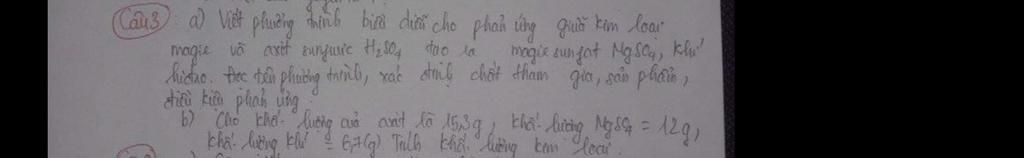 Câu3: a) Viết phương trình biểu diễn cho phản ứng giữa kim loại
magie và axit sunfuric H₂SO₄ tạo ra magie sunfat MgSO₄, khí
hidro. Đọc tên phương trình, xác định chất tham gia, sản phẩm,
điều kiện phản ứng.
b) Cho khối lượng của axit là 15,3g, khối lượng MgSO₄ = 12g,
khối lượng khí = 6,7(g) Tính khối lượng kim loại.